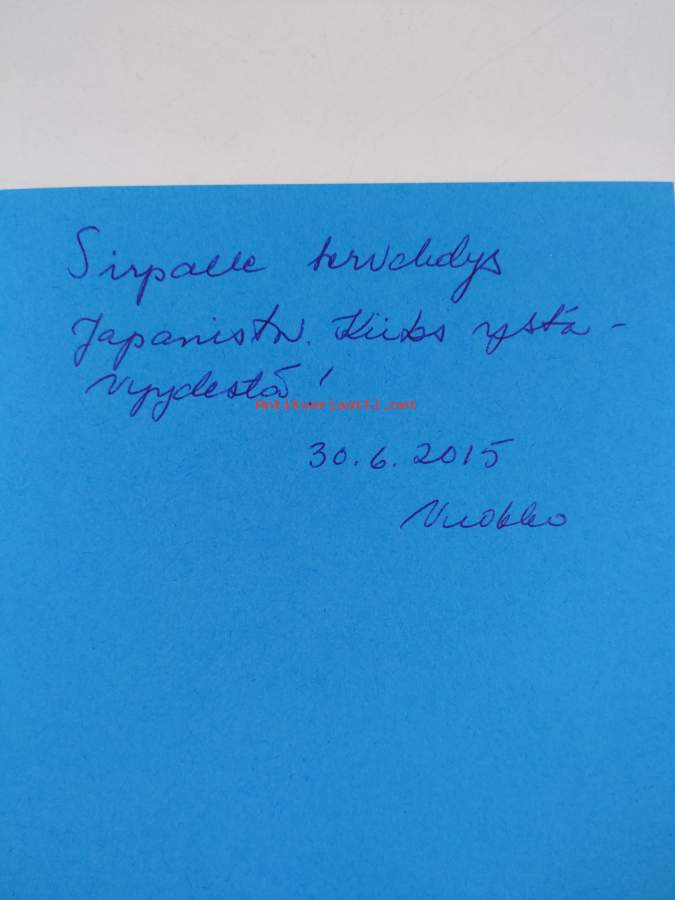 Sirpalle tervehdys
Japanista. Kiitos ystä-
vyydestä!
Antikvariaatti.net
30.6.2015
Vuokko